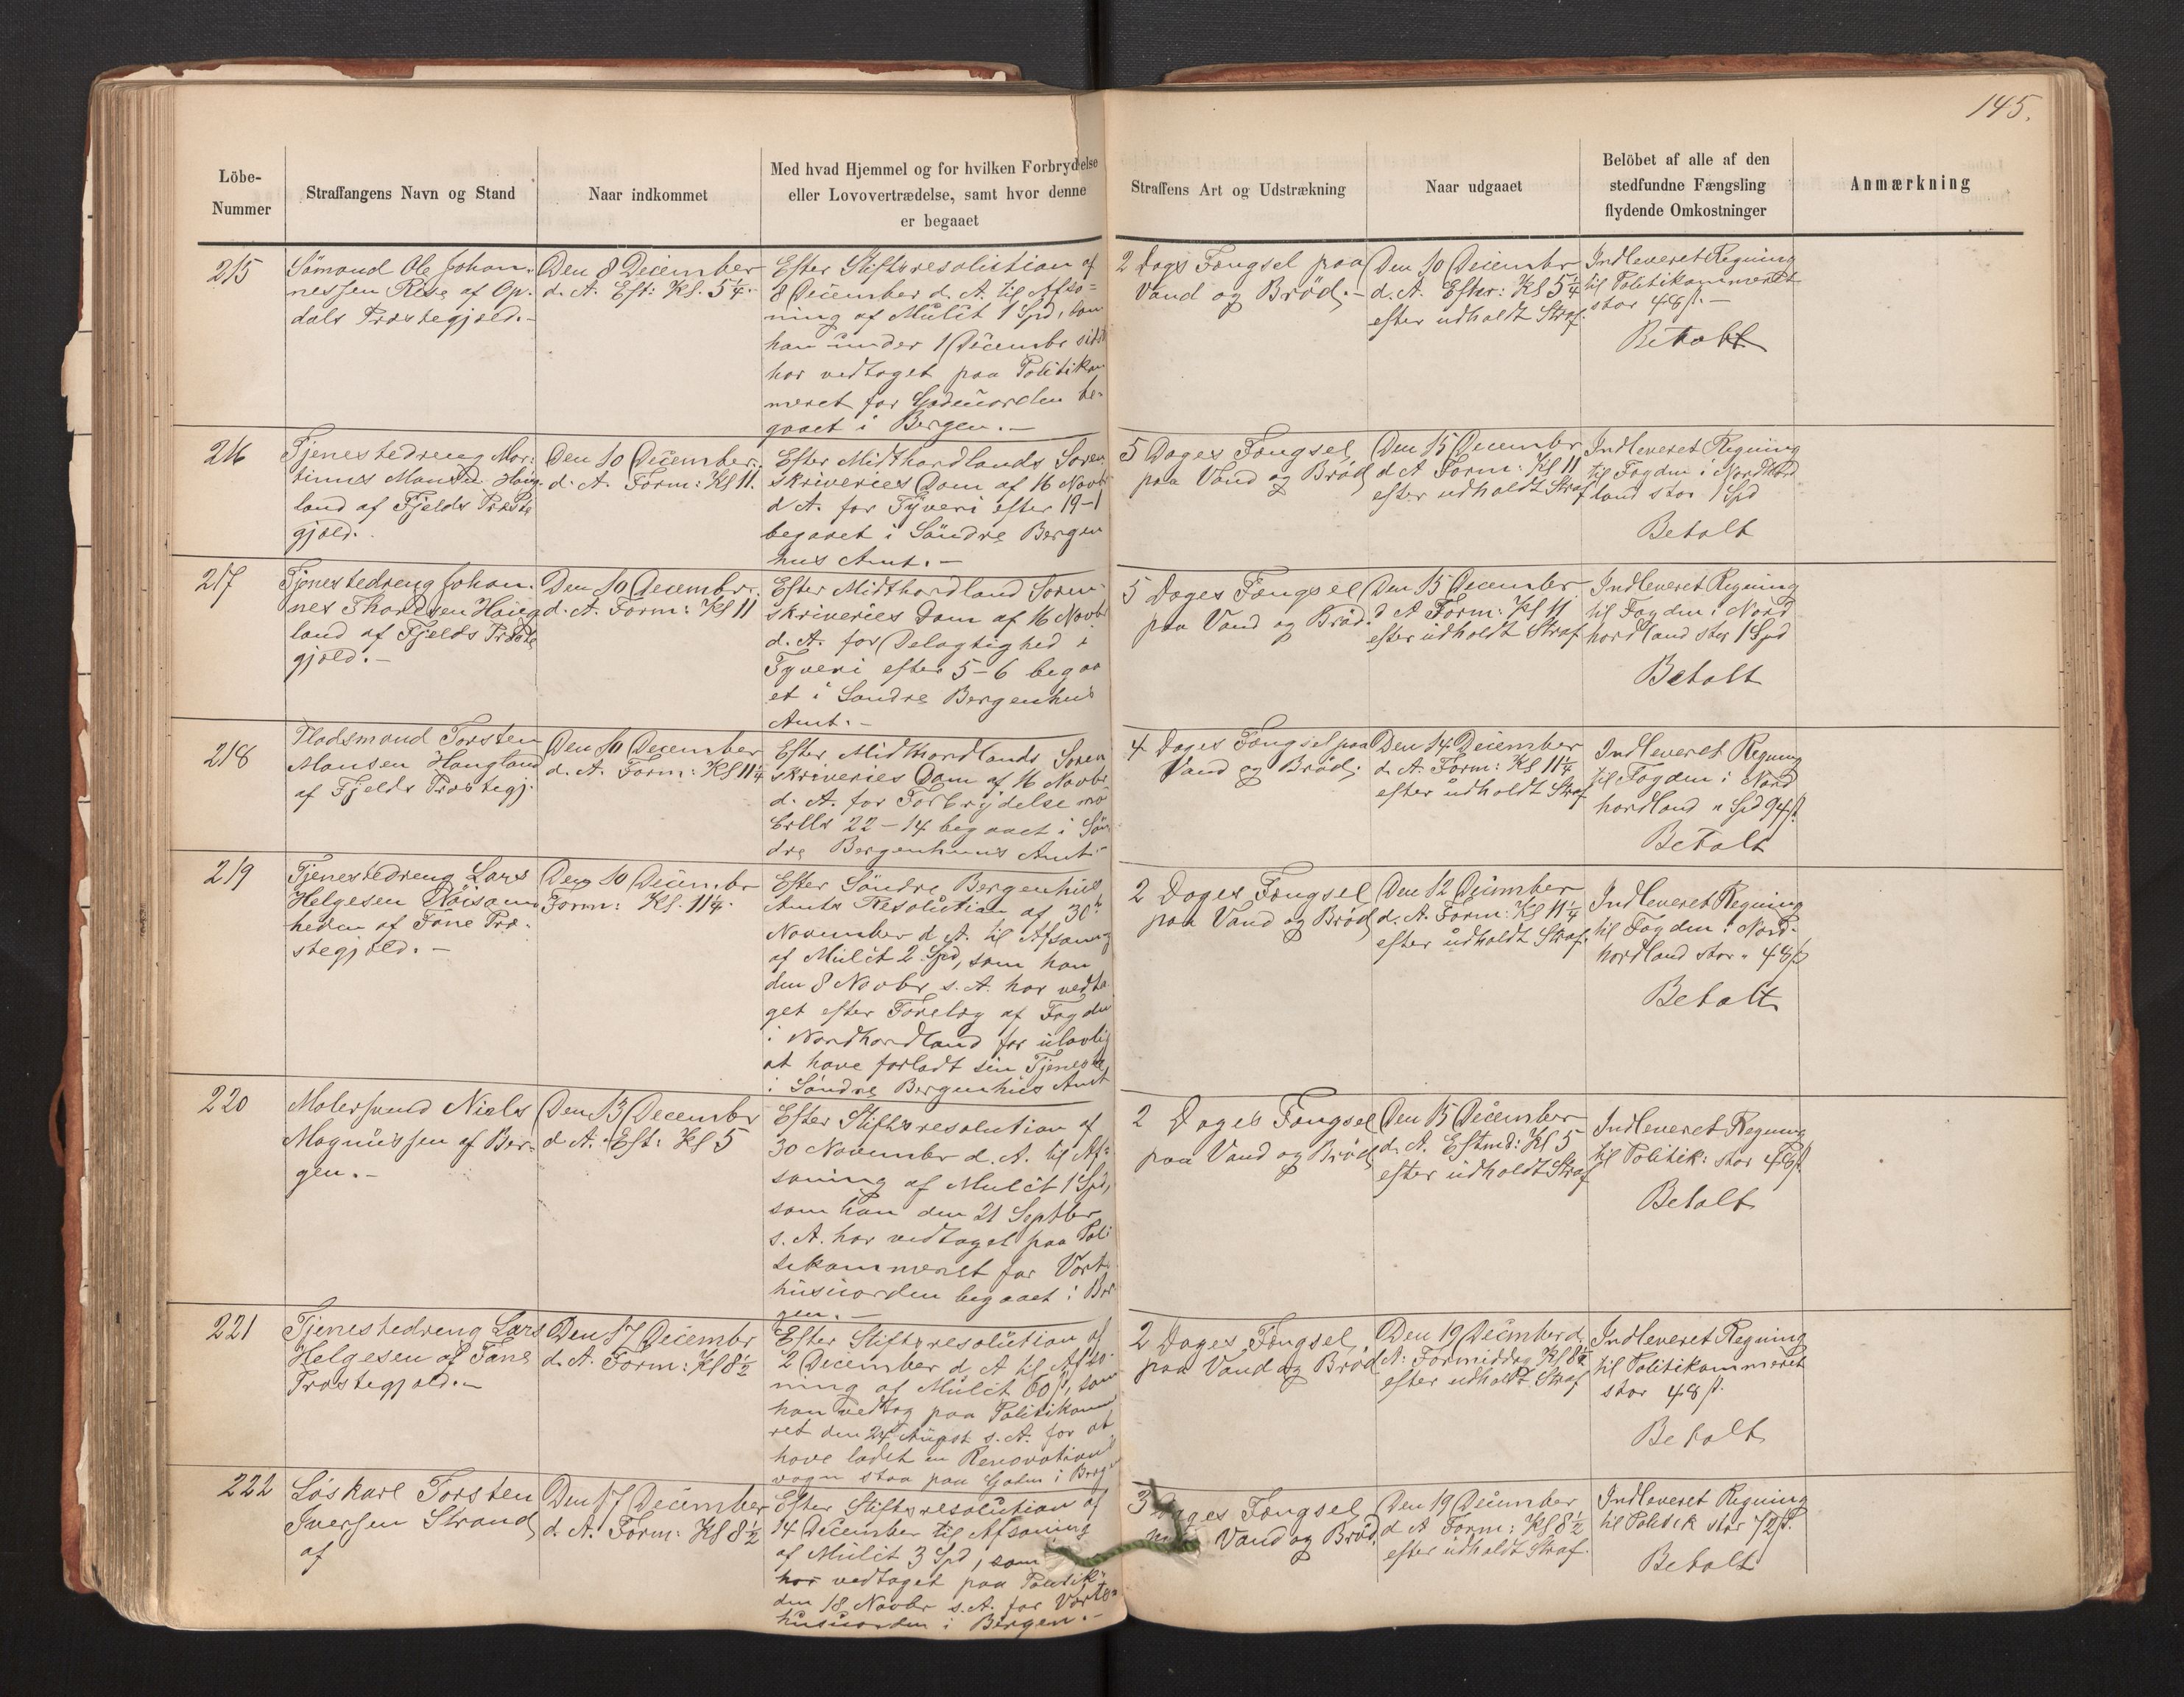 145.
Löbe-
Nummer
Straffangens Navn og Stand
Naar indkommet
Med hvad Hjemmel og for hvilken Forbrydelse
eller Lovovertrædelse, samt hvor denne
er begaaet
Straffens Art og Udstrækning
Naar udgaaet
Belöbet af alle af den
stedfundne Fængsling
flydende Omkostninger
Anmærkning
215
Sömand Ole Johan-
nessen Rise af Op-
dals Præstegjeld.-
Den 8 December
d. A. Eft: Kl. 5¼.
Efter Stiftsresolution af
8 December d. A. til Afso-
ning af Mulct 1 Spd, som
han under 1 Decembr sidst
har vedtaget paa Politikam
meret for Gadeuorden be-
gaaet i Bergen.-
2 Dags Fængsel paa
Vand og Bröd.-
Den 10 Decembr
d. A. Efter: Kl 5¼
efter udholdt Straf.
Indleveret Regning
til Politikammeret
stor 48 ß.-
Betalt
216
Tjenestedreng Mar-
tinus Monsen Haug-
land af Fjelds Præste
gjeld.
Den 10 December
d. A. Form: Kl 11.
Efter Midthordlands Soren
skriveries Dom af 16 Novbr
d A. for Tyveri efter 19-1
begaaet i Söndre Bergen
hus Amt.-
5 Dages Fængsel
paa Vand og Bröd
Den 15 December
d A Form: Kl 11
efter udholdt Straf
Indleveret Regning
til Fogden i Nordhord
land stor 1 Spd
Betalt
217
Tjenestedreng Johan-
nes Thordsen Haug
land af Fjelds Præste
gjeld.-
Den 10 December
d. A. Form: Kl 11
Efter Midthordland Soren-
skriveries Dom af 16 Novbr
d. A. for Delagtighed i
Tyveri efter 5-6 begaa
et i Sondre Bergenhus
Amt.-
5 Dages Fængsel
paa Vand og Bröd.
Den 15 December
d A Form: Kl 11
efter udholdt Straf
Indleveret Regning
til Fogden i Nord
hordland stor 1 Spd
Betalt
218
Pladsmand Torsten
Monsen Haugland
af Fjelds Præstegj.
Den 10 December
d. A. Form: Kl 11¼
Efter Midthordlands Soren
skriveries Dom af 16 Novbr
d. A. for Forbrydelse mo
Crlls 22-14 begaaet i Sön
dre Bergenhuus Amt.-
4 Dages Fængsel paa
Vand og Bröd.
Den 14 December
d. A. Form: Kl 11¼
efter udholdt Straf
Indleveret Regning
til Fogden i Nord
hordland " Spd 94 ß.
Betalt
219
Tjenestedreng Lars
Helgesen
af Fane Præ-
stegjeld.-
Den 10 Decembr
Form: Kl. 11¼.
Efter Söndre Bergenhus
Amts Resolution af 30te
November d. A. til Afsoning
af Mulct 2 Spd, som han
den 8 Novbr s. A. har vedta
get efter Forelæg af Fogden
i Nordhordland for ulovlig
at have forladt sin Tjeneste
i Söndre Bergenhus Amt
2 Dages Fængsel
paa Vand og Bröd
Den 12 December
d. A. Form: Kl 11¼
efter udholdt Straf.
Indleveret Regning
til Fogden i Nord-
hordland stor " 48 ß
Betalt
220
Malersvend Niels
Magnussen af Ber-
gen.-
Den 13 December
d. A. Eft: Kl 5
Efter Stiftsresolution af
30 November d. A. til Af-
soning af Mulct 1 Spd,
som han den 21 Septbr
s. A. har vedtaget paa Poli
tikammeret for Værts
husuorden begaaet i Ber
gen.-
2 Dages Fængsel
paa Vand og Bröd
Den 15 December
d. A. Eftmd: Kl 5
efter udholdt Straf
Indleveret Regning
til Politik: stor 48 ß
Betalt
221
Tjenestedreng Lars
Helgesen af Fane
Præstegjeld.-
Den 17 Decembr
d. A. Form: Kl 8½
Efter Stiftsresolution af
2 December d A til Afso-
ning af Mulct 60 ß, som
han vedtog paa Politikamme
ret den 24 August s. A. for at
have ladet en Renovations
vogn staa paa Gaden i Bergen
2 Dages Fængsel
paa Vand og Bröd
Den 19 December d.
A: Formiddag Kl 8½
efter udholdt Straf
Indleveret Regning
til Politikammeret
stor 48 ß.
Betalt
222
Löskarl Torsten
Iversen Strand
af
Den 17 December
d. A. Form: Kl 8½
Efter Stiftsresolution af
14 December til Afsoning
af Mulct 3 Spd, som
har vedtaget paa Politik-
den 18 Novbr s. A. for Værts-
husuorden i Bergen.-
3 Dages Fængsel
Vand og Bröd.
Den 19 December
d A Form: Kl 8½
efter udholdt Straf.
Indleveret Regning
til Politik stor 72 ß.
Betalt